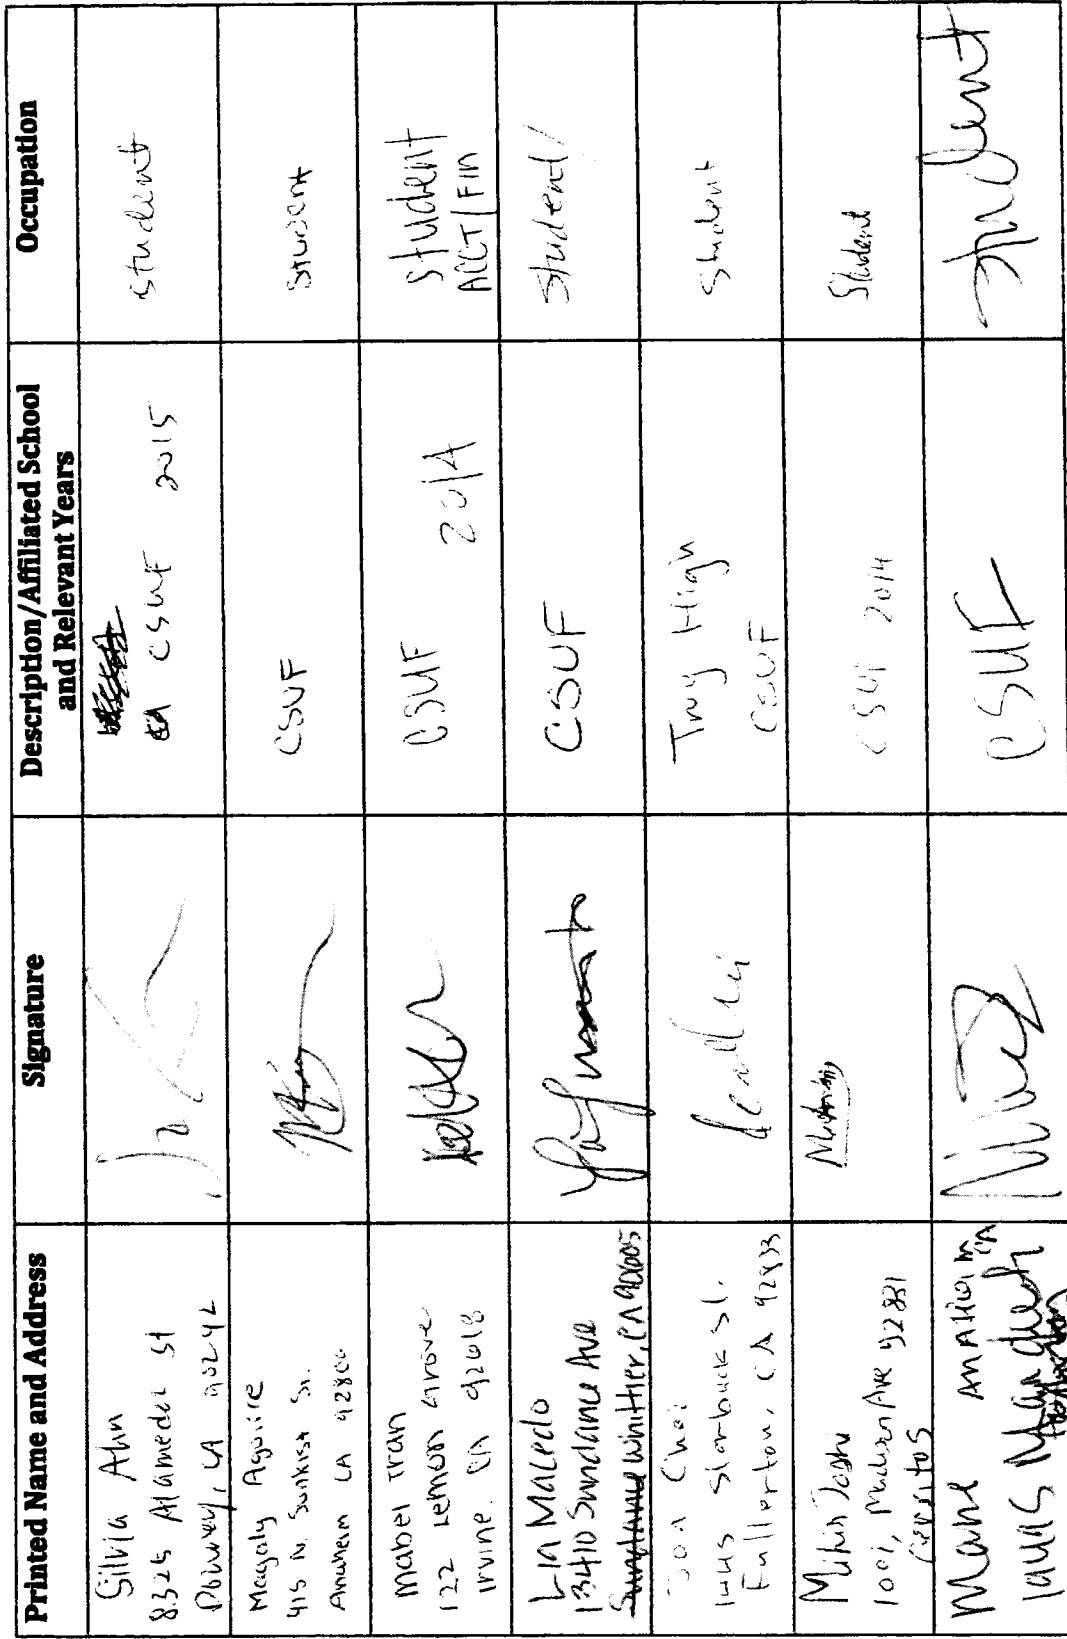 Printed Name and Address Signature Description/Affiliated School and Relevant Years Occupation
Silvia Ahn
8325 Alameda St
Downey, CA 90242
CSUF 2015
student
Magaly Aguirre
415 N. Sunkist St.
Anaheim CA
CSUF
Student
Mabel Tran
122 Lemon Grove
Irvine CA 92618
CSUF 2014
Student
ACCT/FIN
Lia Macedo
13410 Sundance Ave
Whittier, CA 90605
CSUF
Student
Choi
Starbuck St.
Fullerton, CA 92833
Troy High
CSUF
Student
Joshi
Madison Ave 92831
CSUF 2014
Student
Anaheim CA
CSUF
Student